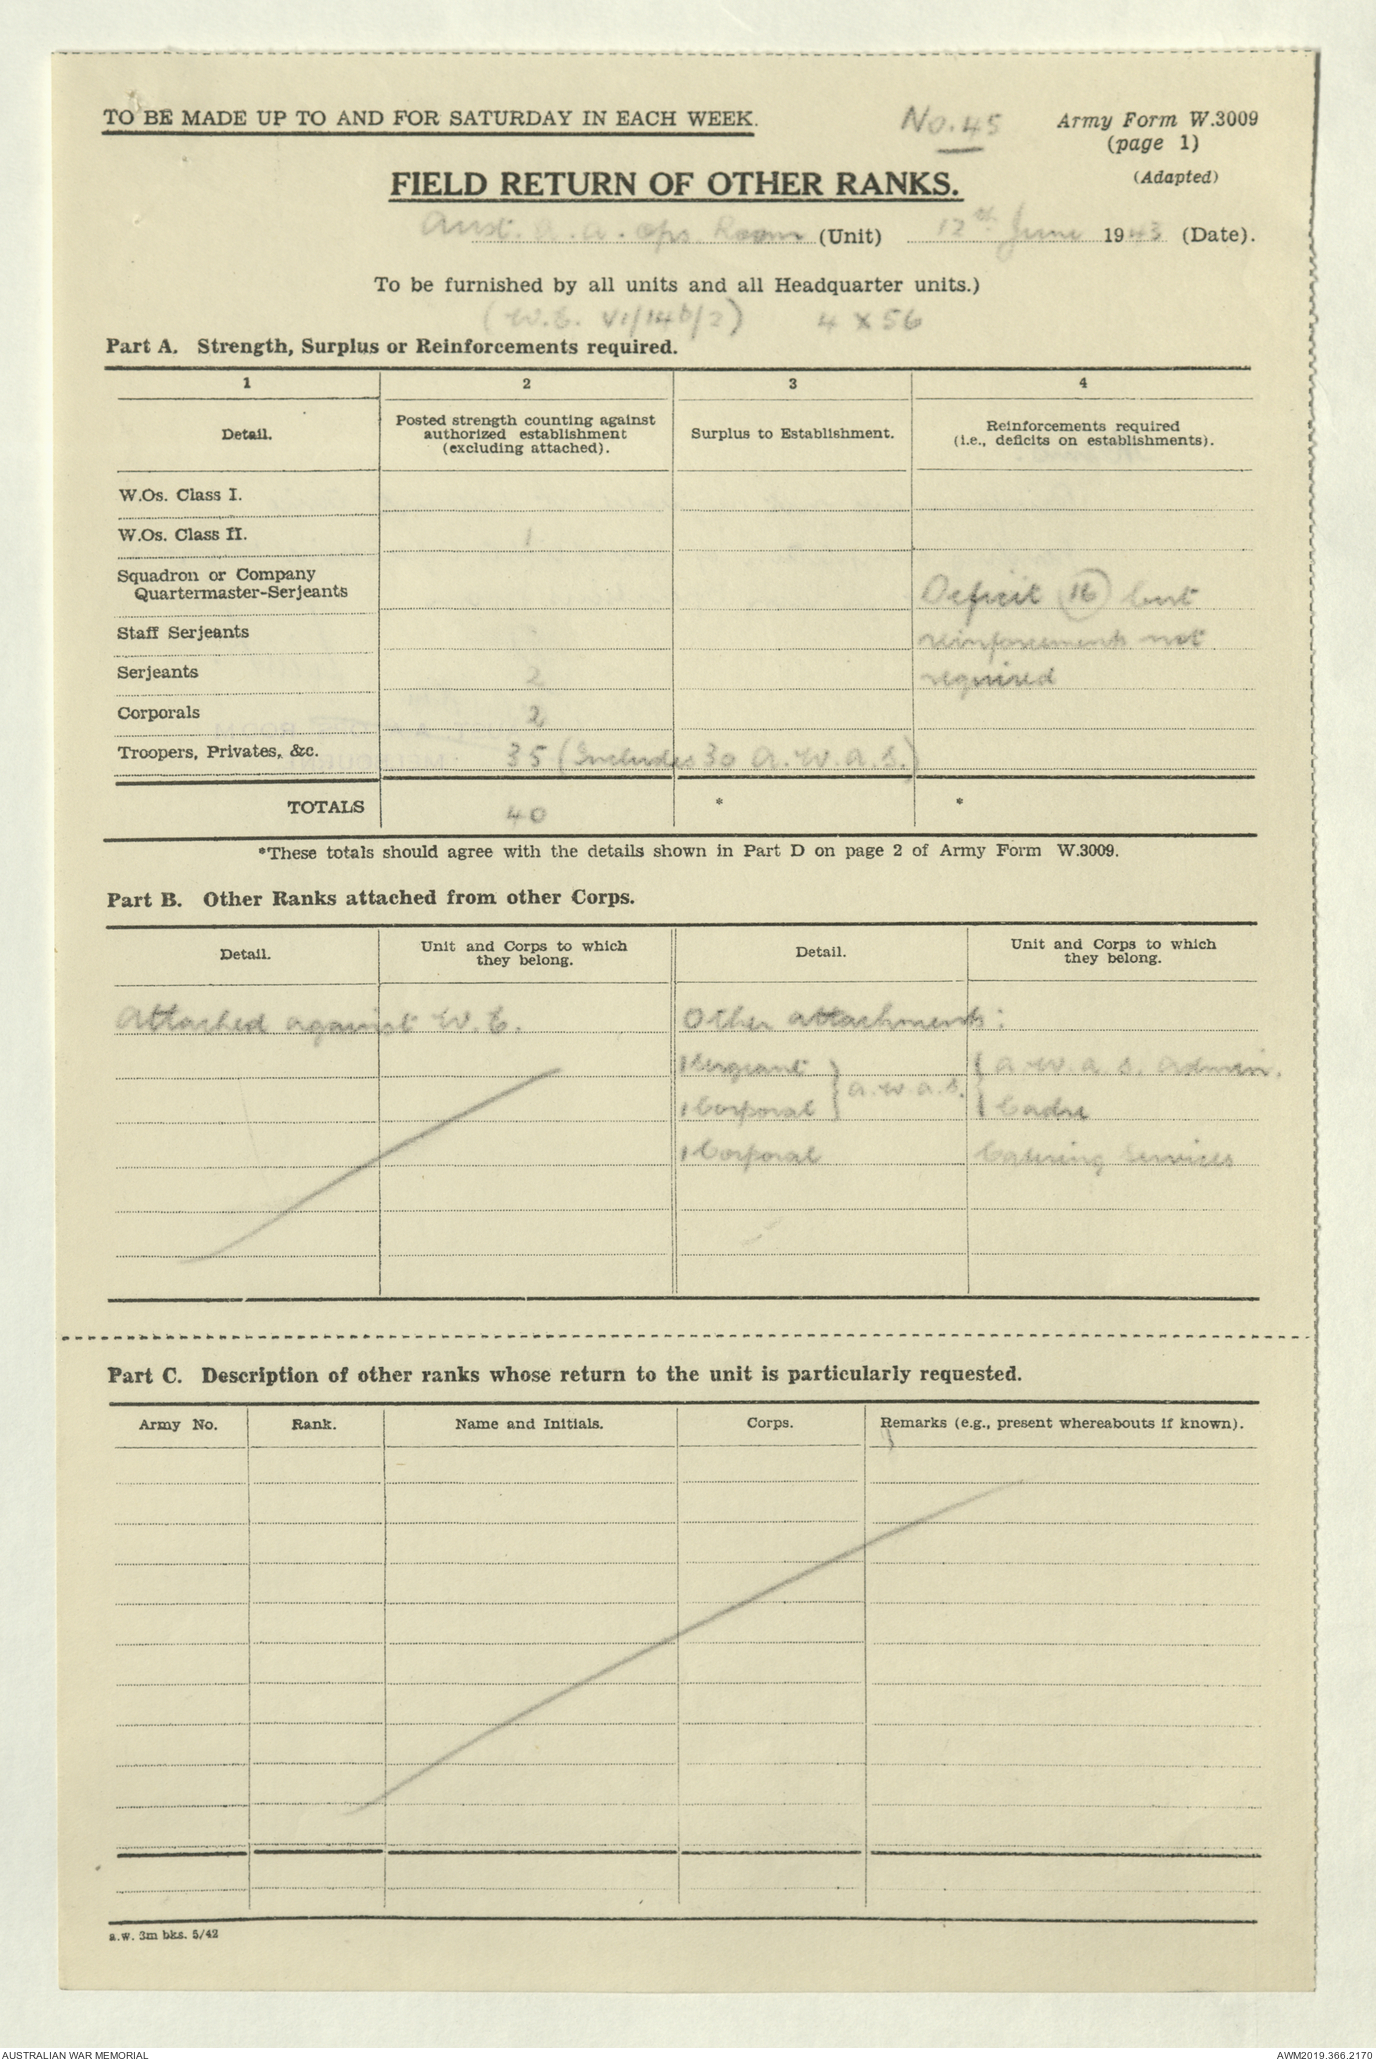 TO BE MADE UP TO AND FOR SATURDAY IN EACH WEEK.
No. 45
Army Form W.3009
(page 1)
(Adapted)
FIELD RETURN OF OTHER RANKS.
Aust. A. A. Ops Room (Unit) 12th June 1943 (Date).
To be furnished by all units and all Headquarter units.)
(W.E. VI/14b/2) 4 x 56
Part A. Strength, Surplus or Reinforcements required.
1 2 3 4
Detail.
Posted strength counting against
authorized establishment
(excluding attached).
Surplus to Establishment.
Reinforcements required
(i.e., deficits on establishments).
W.Os. Class I.
W.Os. Class II. 1
Squadron or Company
Quartermaster-Serjeants
Deficit (16) but
Staff Serjeants
reinforcements not
Serjeants 2
required
Corporals 2
Troopers, Privates, &c. 35 (Includes 30 A.W.A.S.)
TOTALS 40 * *
*These totals should agree with the details shown in Part D on page 2 of Army Form W.3009.
Part B. Other Ranks attached from other Corps.
Detail.
Unit and Corps to which
they belong.
Detail.
Unit and Corps to which
they belong.
Attached against W.E.
Other attachments:
1 Sergeant } A.W.A.S. { A.W.A.S. Admin.
1 Corporal Cadre
1 Corporal Catering Services
Part C. Description of other ranks whose return to the unit is particularly requested.
Army No. Rank. Name and Initials. Corps. Remarks (e.g., present whereabouts if known).
a.w. 3m bks. 5/42
AUSTRALIAN WAR MEMORIAL
AWM2019.366.2170